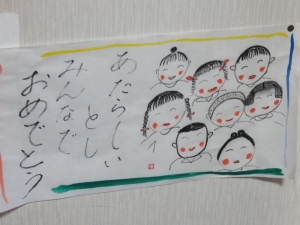 あたらしい
とし
みんなで
おめでとう